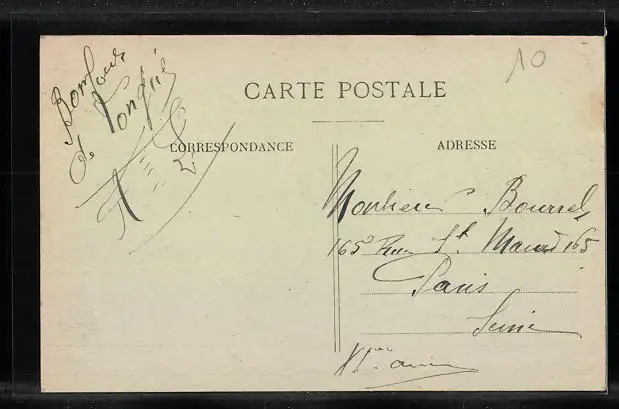 10
CARTE POSTALE
Bonjour
de Longué
CORRESPONDANCE
ADRESSE
Monsieur Bourrel
165 Rue St. Maur 165
Paris
Seine